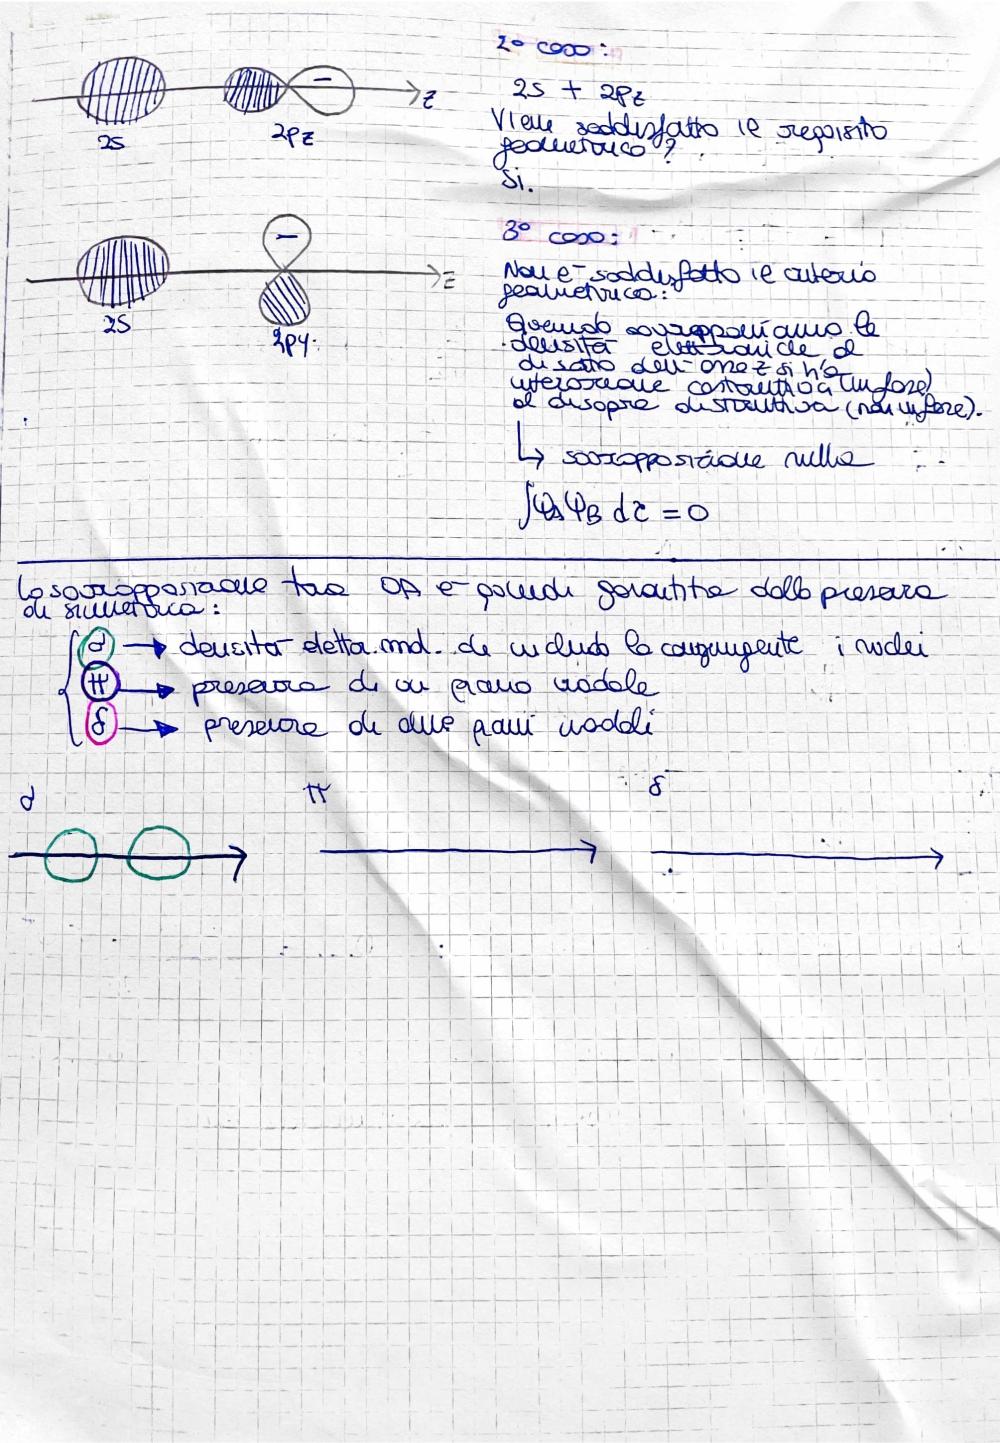 2° caso:
2s + 2pz
Viene soddisfatto il requisito
geometrico?
Si.
z
2s
2pz
3° caso:
Non è soddisfatto il criterio
geometrico:
Quando sovrapponiamo le
densità elettroniche al
di sotto dell'asse z si ha
interazione costruttiva (in fase)
al disopra distruttiva (non in fase).
↳ sovrapposizione nulla
∫φA φB dτ = 0
z
2s
2py
La sovrapposizione tra OA è quindi garantita dalla presenza
di simmetria:
σ → densità elettr. mol. che include la congiungente i nuclei
π → presenza di un piano nodale
δ → presenza di due piani nodali
σ
π
δ